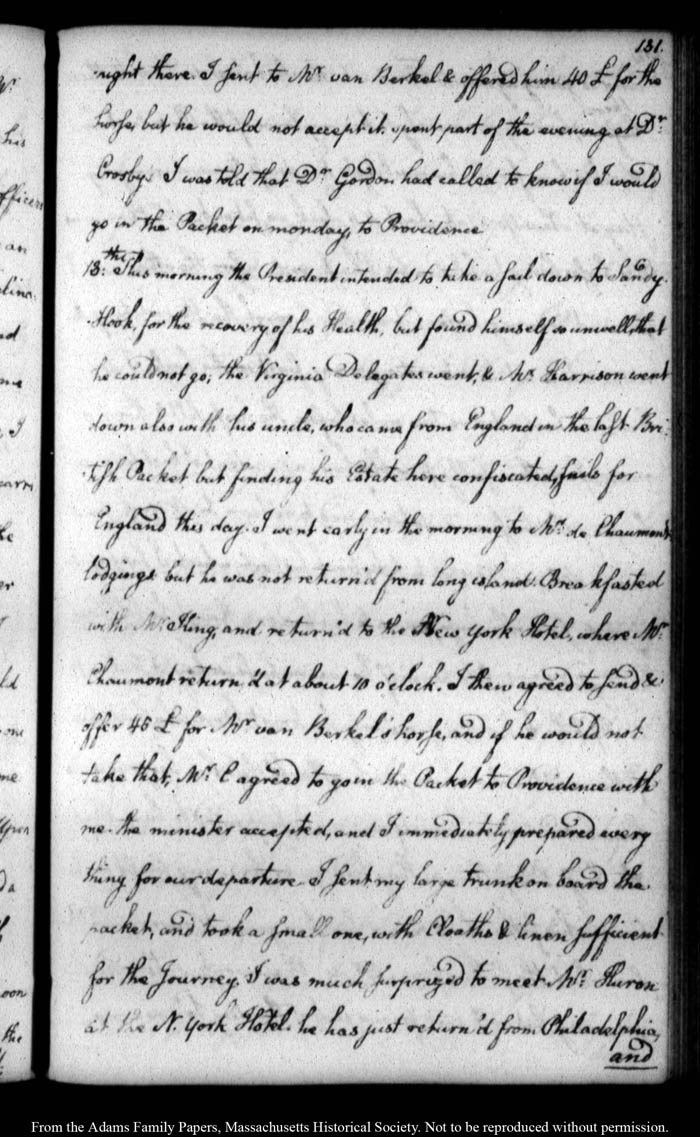 131.
night there. I sent to Mr. van Berkel & offered him 40 £ for the
horse, but he would not accept it. spent part of the evening at Dr.
Crosby's I was told that Dr. Gordon had called to know if I would
go in the Packet on monday, to Providence
13.th This morning the President intended to take a sail down to Sandy-
Hook, for the recovery of his Health, but found himself so unwell, that
he could not go; the Virginia Delegates went, & Mr. Harrison went
down also with his uncle, who came from England in the last Bri-
tish Packet but finding his Estate here confiscated, sails for
England this day. I went early in the morning to Mr. de Chaumont's
lodgings but he was not return'd from long island. Breakfasted
with Mr. King, and return'd to the New York Hotel, where Mr.
Chaumont return'd at about 10 o'clock. I then agreed to send &
offer 45 £ for Mr. van Berkel's horse, and if he would not
take that, Mr. C agreed to go in the Packet to Providence with
me. the minister accepted, and I immediately prepared every
thing for our departure. I sent my large trunk on board the
packet, and took a small one, with Cloaths & linen sufficient
for the Journey. I was much surprized to meet Mr. Huron
at the N. York Hotel. he has just return'd from Philadelphia,
and
From the Adams Family Papers, Massachusetts Historical Society. Not to be reproduced without permission.